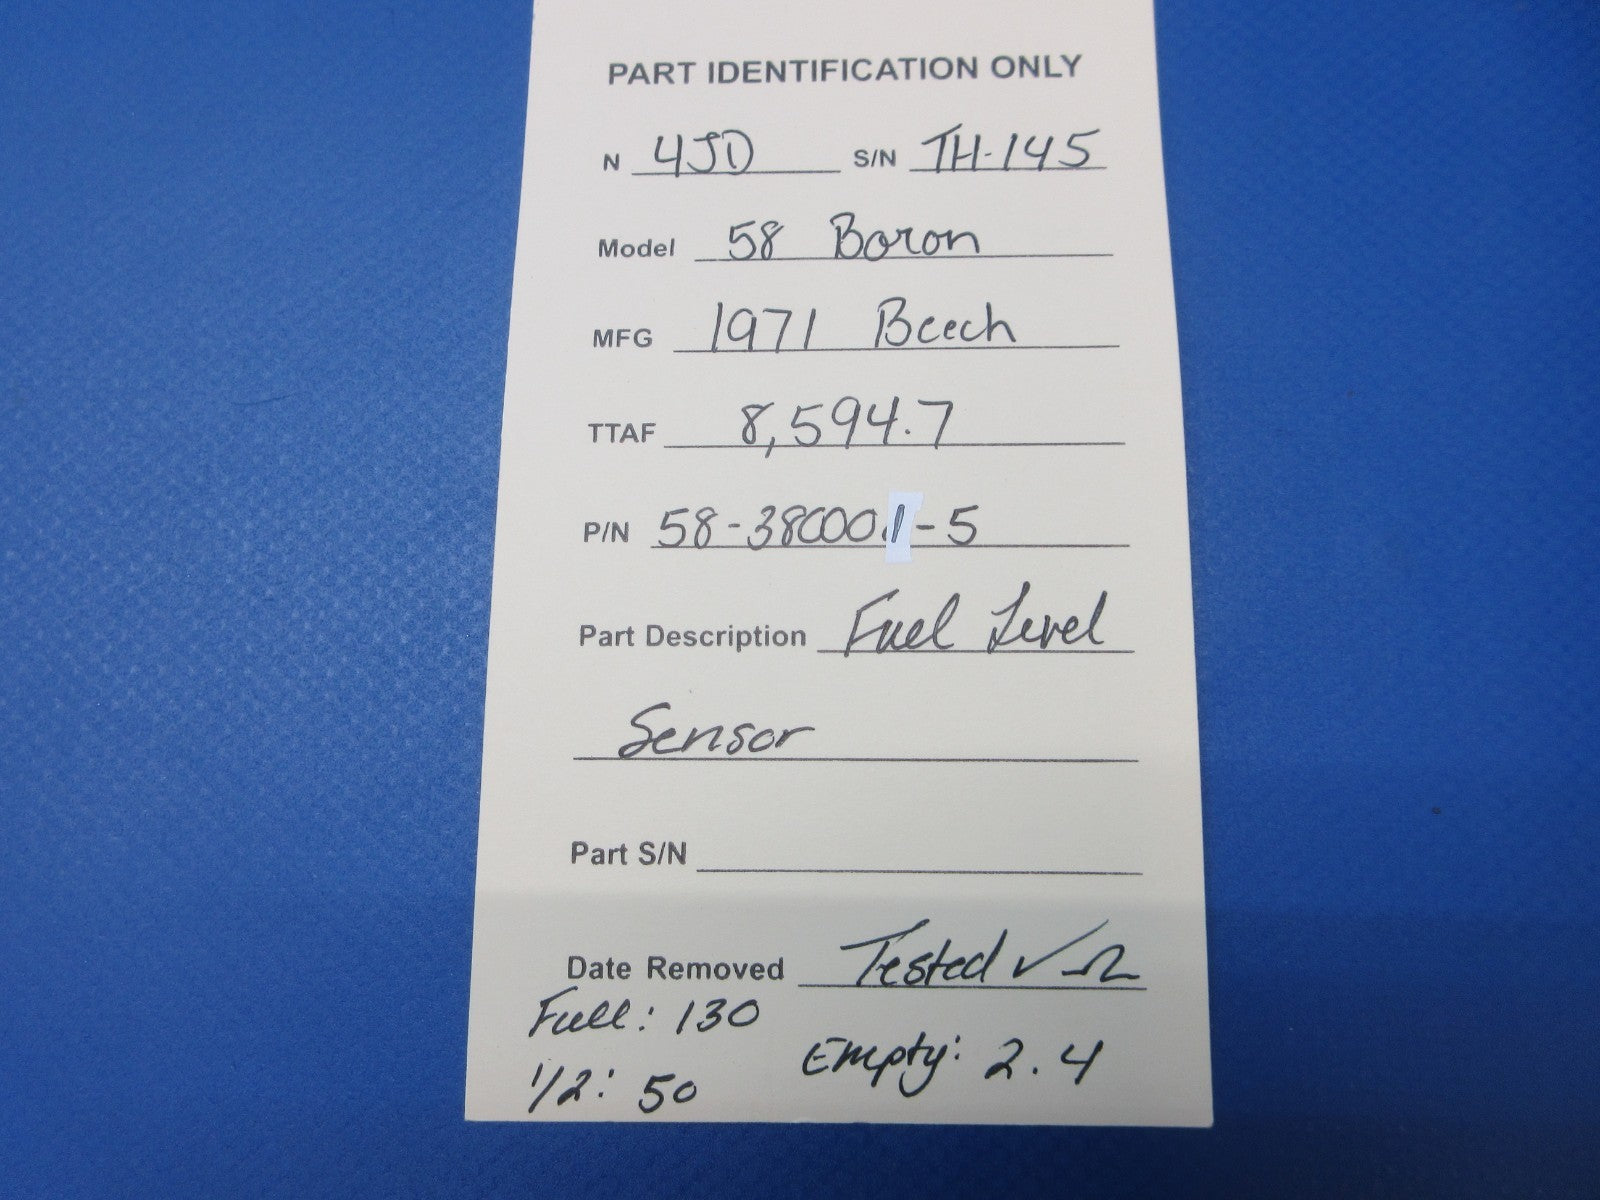 PART IDENTIFICATION ONLY
N 4JD S/N TH-145
Model 58 Baron
MFG 1971 Beech
TTAF 8,594.7
P/N 58-380001-5
Part Description Fuel Level
Sensor
Part S/N
Date Removed Tested ✓ Ω
Full: 130
Empty: 2.4
1/2: 50